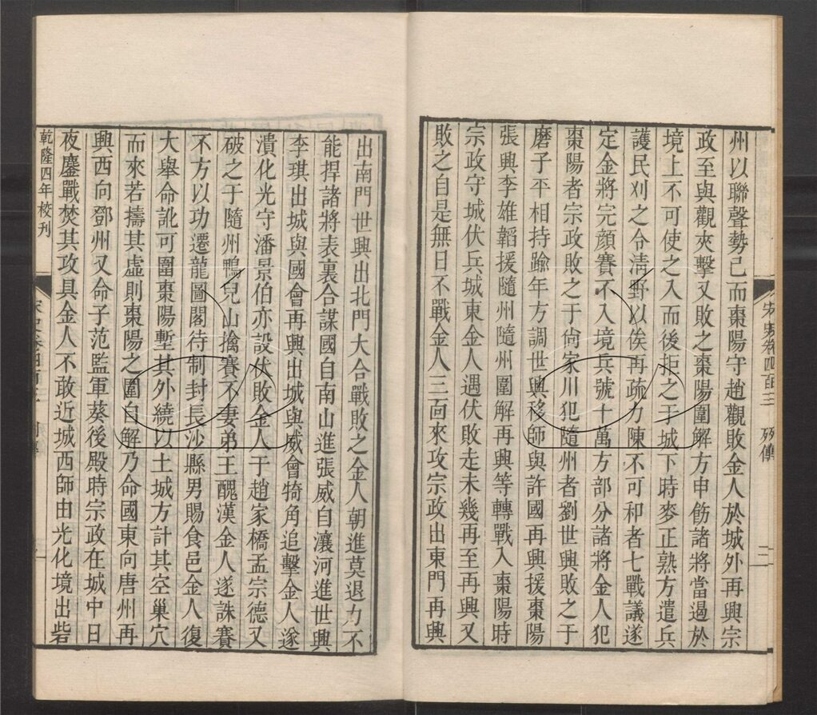 州以聯聲勢已而棗陽守趙觀敗金人於城外再興宗
政至與觀夾擊又敗之棗陽圍解方申飭諸將當遏於
境上不可使之入而後拒之于城下時麥正熟方遣兵
護民刈之令清野以俟再疏力陳不可和者七戰議遂
定金將完顏賽不入境兵號十萬方部分諸將金人犯
棗陽者宗政敗之于尙家川犯隨州者劉世興敗之于
磨子平相持踰年方調世興移師與許國再興援棗陽
張興李雄韜援隨州隨州圍解再興等轉戰入棗陽時
宗政守城伏兵城東金人遇伏敗走未幾再至再興又
敗之自是無日不戰金人三面來攻宗政出東門再興
宋史卷四百三 列傳 二
出南門世興出北門大合戰敗之金人朝進莫退力不
能捍諸將表裏合謀國自南山進張威自瀼河進世興
李琪出城與國會再興出城與威會犄角追擊金人遂
潰化光守潘景伯亦設伏敗金人于趙家橋孟宗德又
破之于隨州鴨兒山擒賽不妻弟王醜漢金人遂誅賽
不方以功遷龍圖閣待制封長沙縣男賜食邑金人復
大舉命訛可圍棗陽塹其外繞以土城方計其空巢穴
而來若擣其虛則棗陽之圍自解乃命國東向唐州再
興西向鄧州又命子范監軍葵後殿時宗政在城中日
夜鏖戰焚其攻具金人不敢近城西師由光化境出砦
乾隆四年校刊